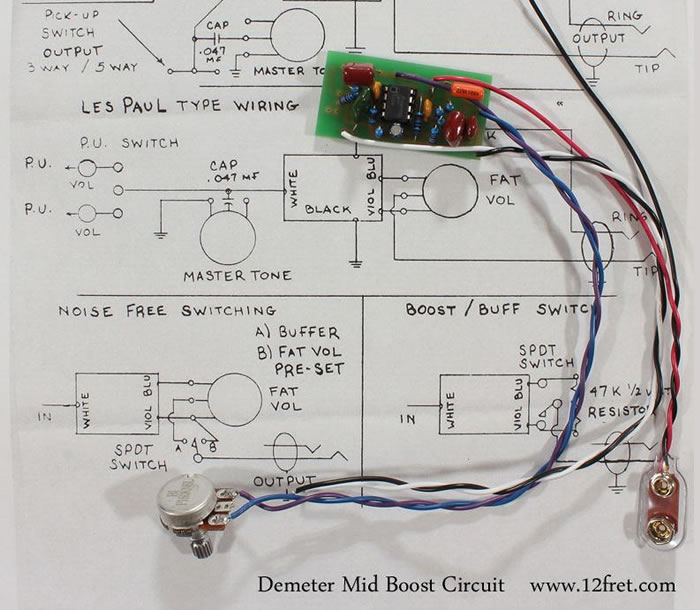 PICK-UP
SWITCH
OUTPUT
3 WAY / 5 WAY
CAP
.047
MF
MASTER
RING
OUTPUT
TIP
LES PAUL TYPE WIRING
P.U. SWITCH
P.U.
VOL
P.U.
VOL
CAP
.047 MF
MASTER TONE
WHITE
BLACK
VIOL BLU
FAT
VOL
RING
TIP
NOISE FREE SWITCHING
A) BUFFER
B) FAT VOL
PRE-SET
IN
WHITE
VIOL BLU
FAT
VOL
A
B
SPDT
SWITCH
OUTPUT
BOOST / BUFF
SPDT
SWITCH
IN
WHITE
VIOL BLU
47K 1/2
Demeter Mid Boost Circuit www.12fret.com